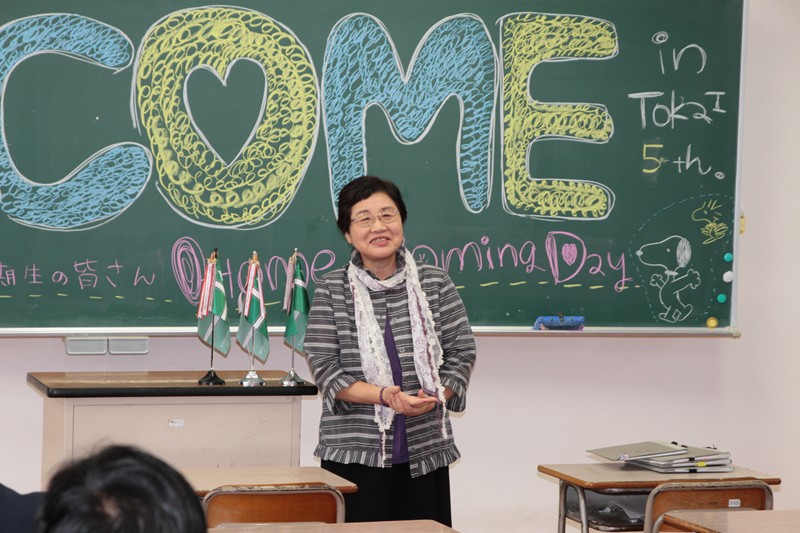 COME
in
TokaI
5th.
期生の皆さん
Home
oming Day